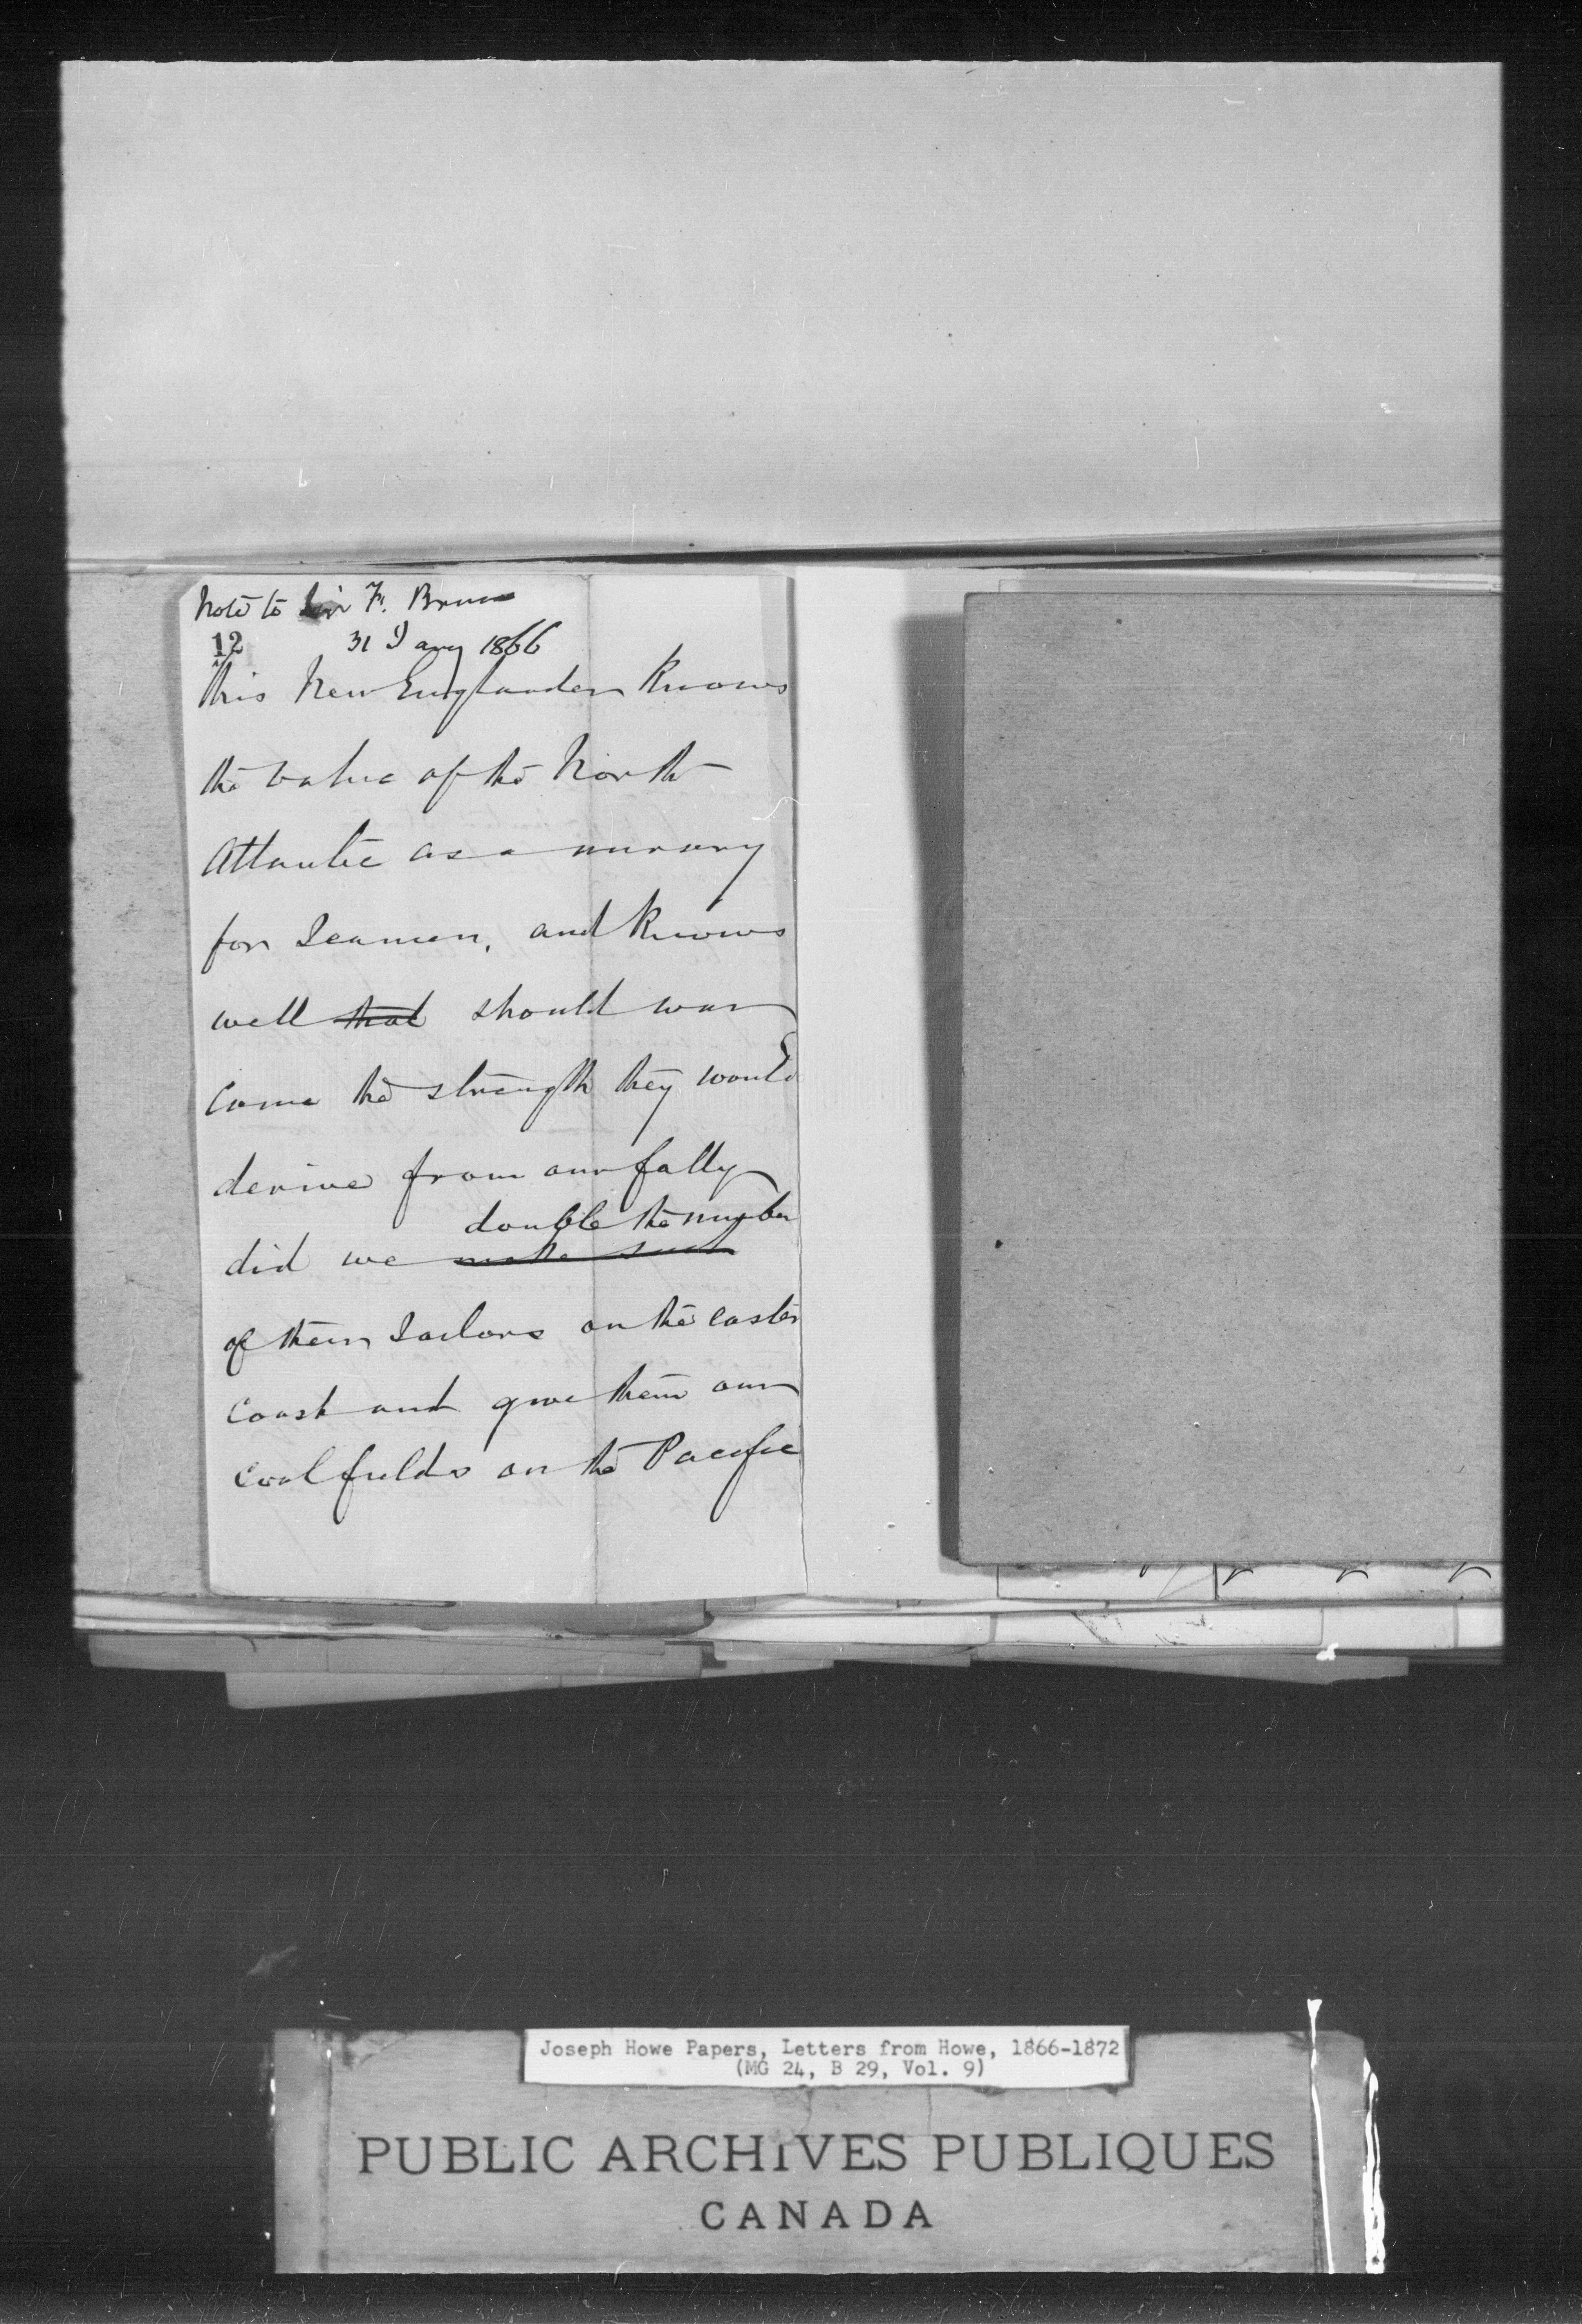 Note to Sir F. Bruce
12 31 Jany 1866
This New Englander Knows
the value of the North
Atlantic as a nursery
for Seamen, and Knows
well that should war
come the strength they would
derive from our folly
double the number
did we make such
of their Sailors on the Easter
Coast and give them our
Coal fields on the Pacific
Joseph Howe Papers, Letters from Howe, 1866-1872
(MG 24, B 29, Vol. 9)
PUBLIC ARCHIVES PUBLIQUES
CANADA